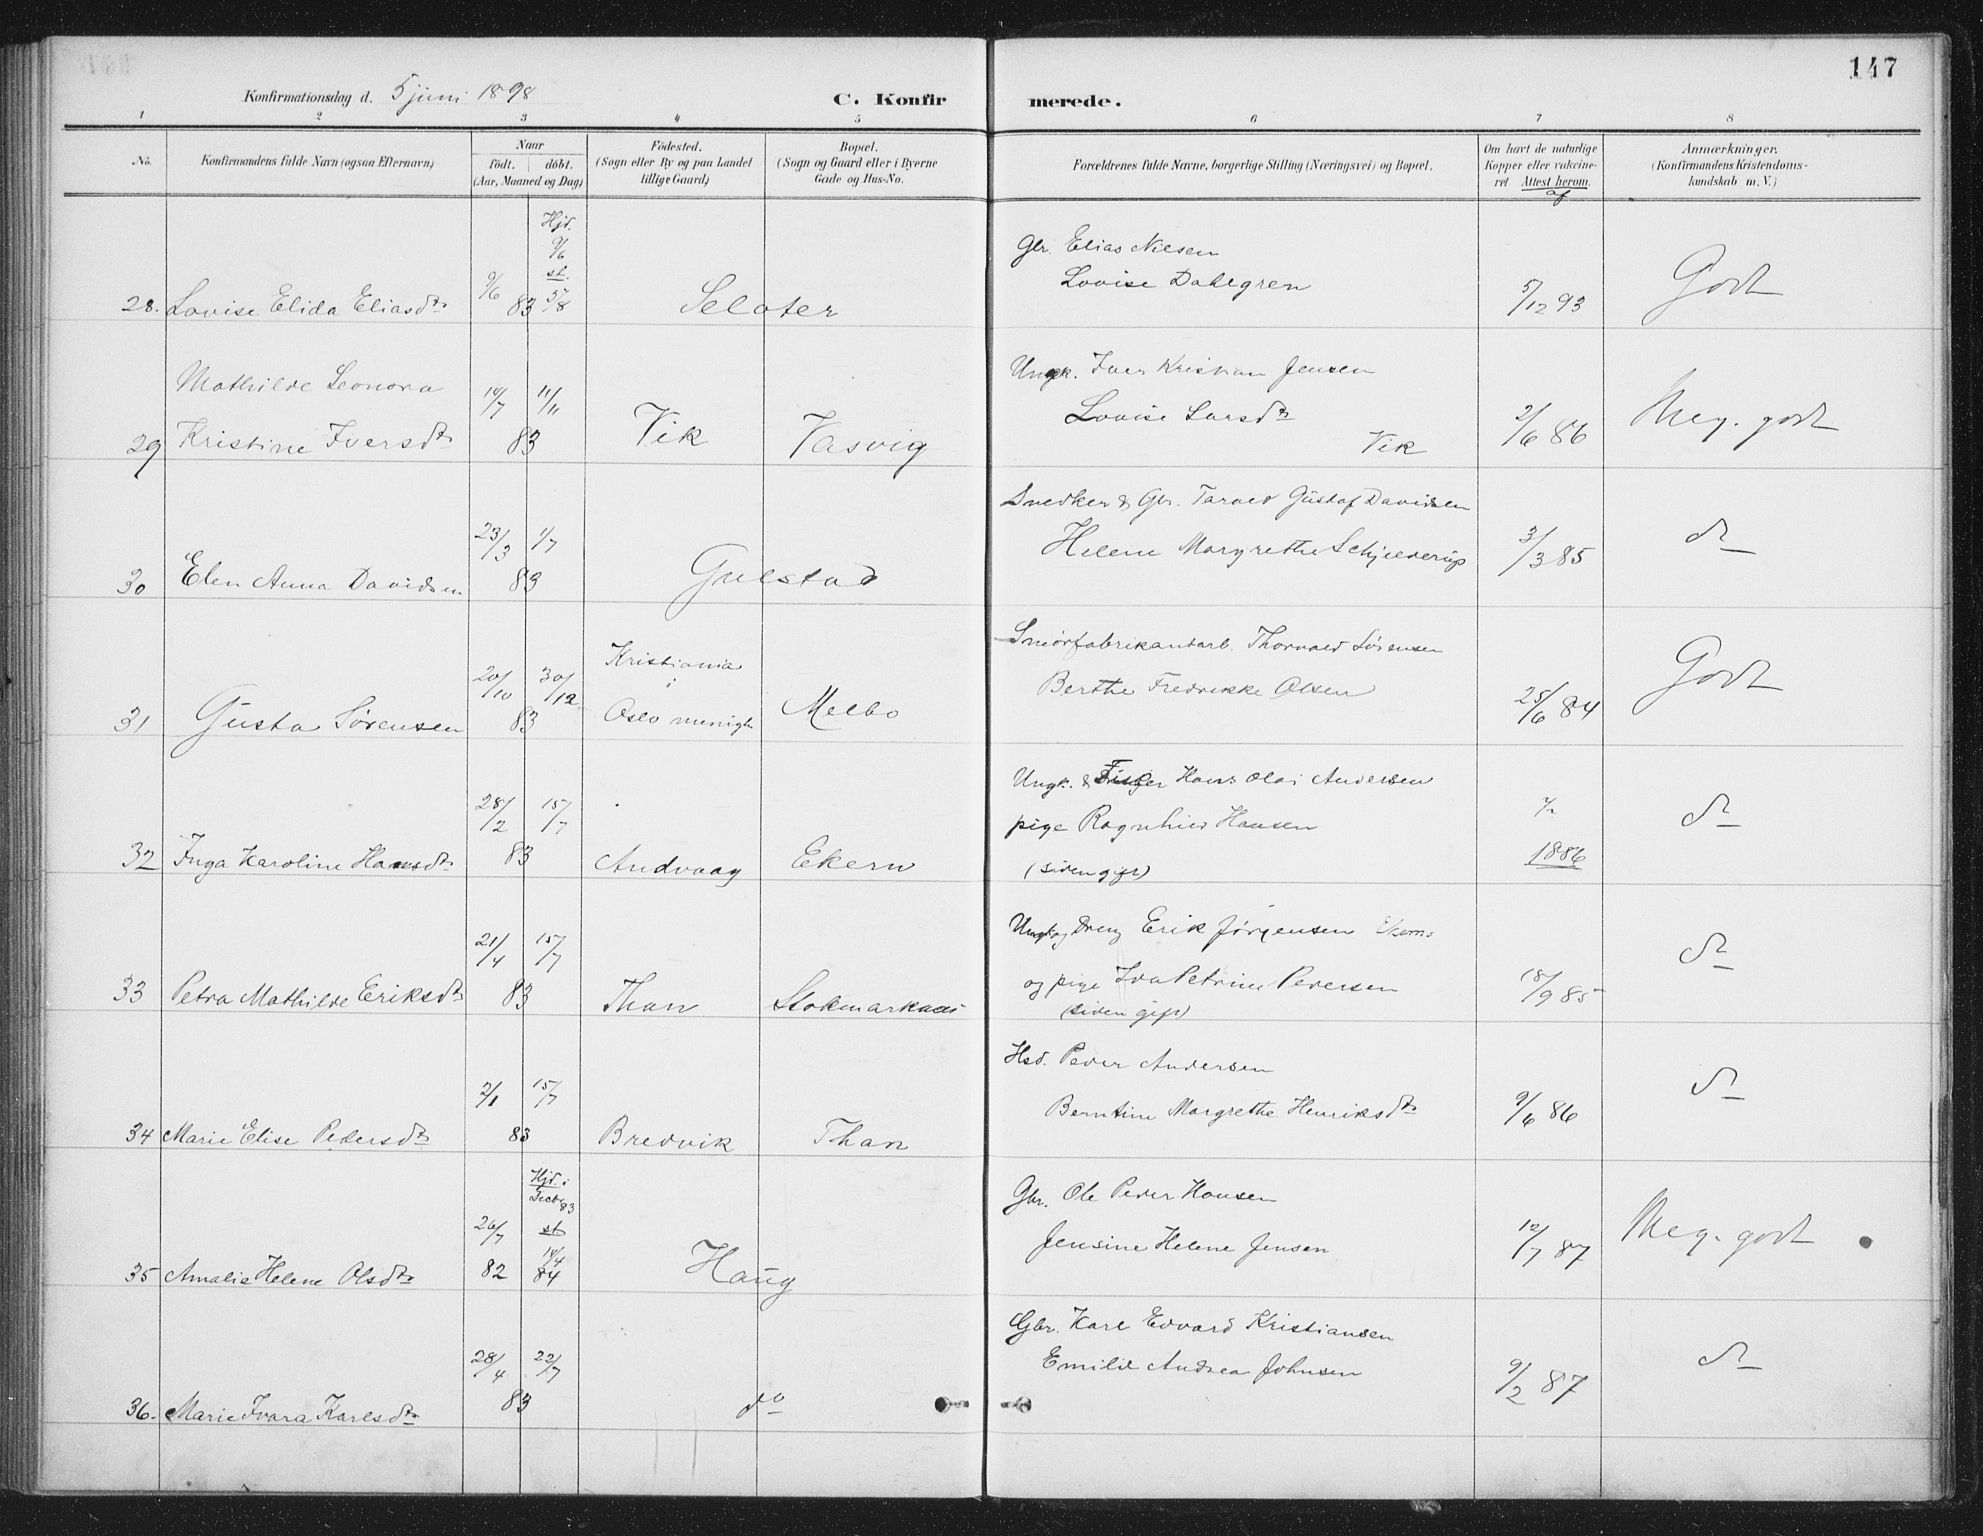 147
Konfirmationsdag d. 5 juni 1898
C. Konfirmerede.
1 2 3 4 5 6 7 8
No.
Konfirmandens fulde Navn (ogsaa Efternavn)
Naar
födt. döbt.
(Aar, Maaned og Dag)
Födested.
(Sogn eller By og paa Landet
tillige Gaard)
Bopæl.
(Sogn og Gaard eller i Byerne
Gade og Hus-No.
Forældrenes fulde Navne, borgerlige Stilling (Næringsvei) og Bopæl.
Om havt de naturlige
Kopper eller vakcine-
ret Attest herom.
af
Anmærkninger.
(Konfirmandens Kristendoms-
kundskab m. V.)
28. Lovise Elida Eliasdtr
9/6 83
Hjd.
9/6
st.
5/8
Selater
Gbr. Elias Nilsen
Lovise Dahlgren
5/12 93
Godt
Mathilde Leonora
29 Kristine Iversdtr
14/7 11/11
83
Vik
Vasvig
Ungk. Iver Kristian Jensen
Lovise Larsdtr
Vik
2/6 86
Meg. godt
30 Elen Anna Davidsen
23/3 1/7
83
Gulstad
Snedker & Gbr. Gustaf Davidsen
Helene Margrethe Schjelderup
3/3 85
do
31 Gusta Sørensen
20/10 30/12
83
Kristiania
i
Oslo menigh
Melbo
Smörfabrikantarb. Thorvald Sörensen
Berthe Fredrikke Olsen
25/6 84
Godt
32 Inga Karoline Hansdtr
28/2 15/7
83
Andvaag
Ekern
Ungk. & Fisker Hans Olai Andersen
pige Ragnhild Hansen
(siden gift)
1886
do
33 Petra Mathilde Eriksdtr
21/4 15/7
83
Than
Stokmarknæs
Ungk og Dreng Erik Jørgensen
og pige Ida Petrine Pedersen
(siden gift)
18/9 85
do
34 Marie Elise Pedersdtr
2/1 15/7
83
Bredvik
Than
Hsd. Peder Andersen
Berntine Margrethe Henriksdtr
9/6 86
do
35 Amalie Helene Olsdtr
26/7
82
Hjd. i
Decbr 83
st
14/4
84
Haug
Gbr. Ole Peder Hansen
Jensine Helene Jensen
12/7 87
Meg. godt
36. Marie Ivara Karlsdtr
28/4 22/7
83
do
Gbr. Karl Edvard Kristiansen
Emilie Andrea Johnsen
9/2 87
do